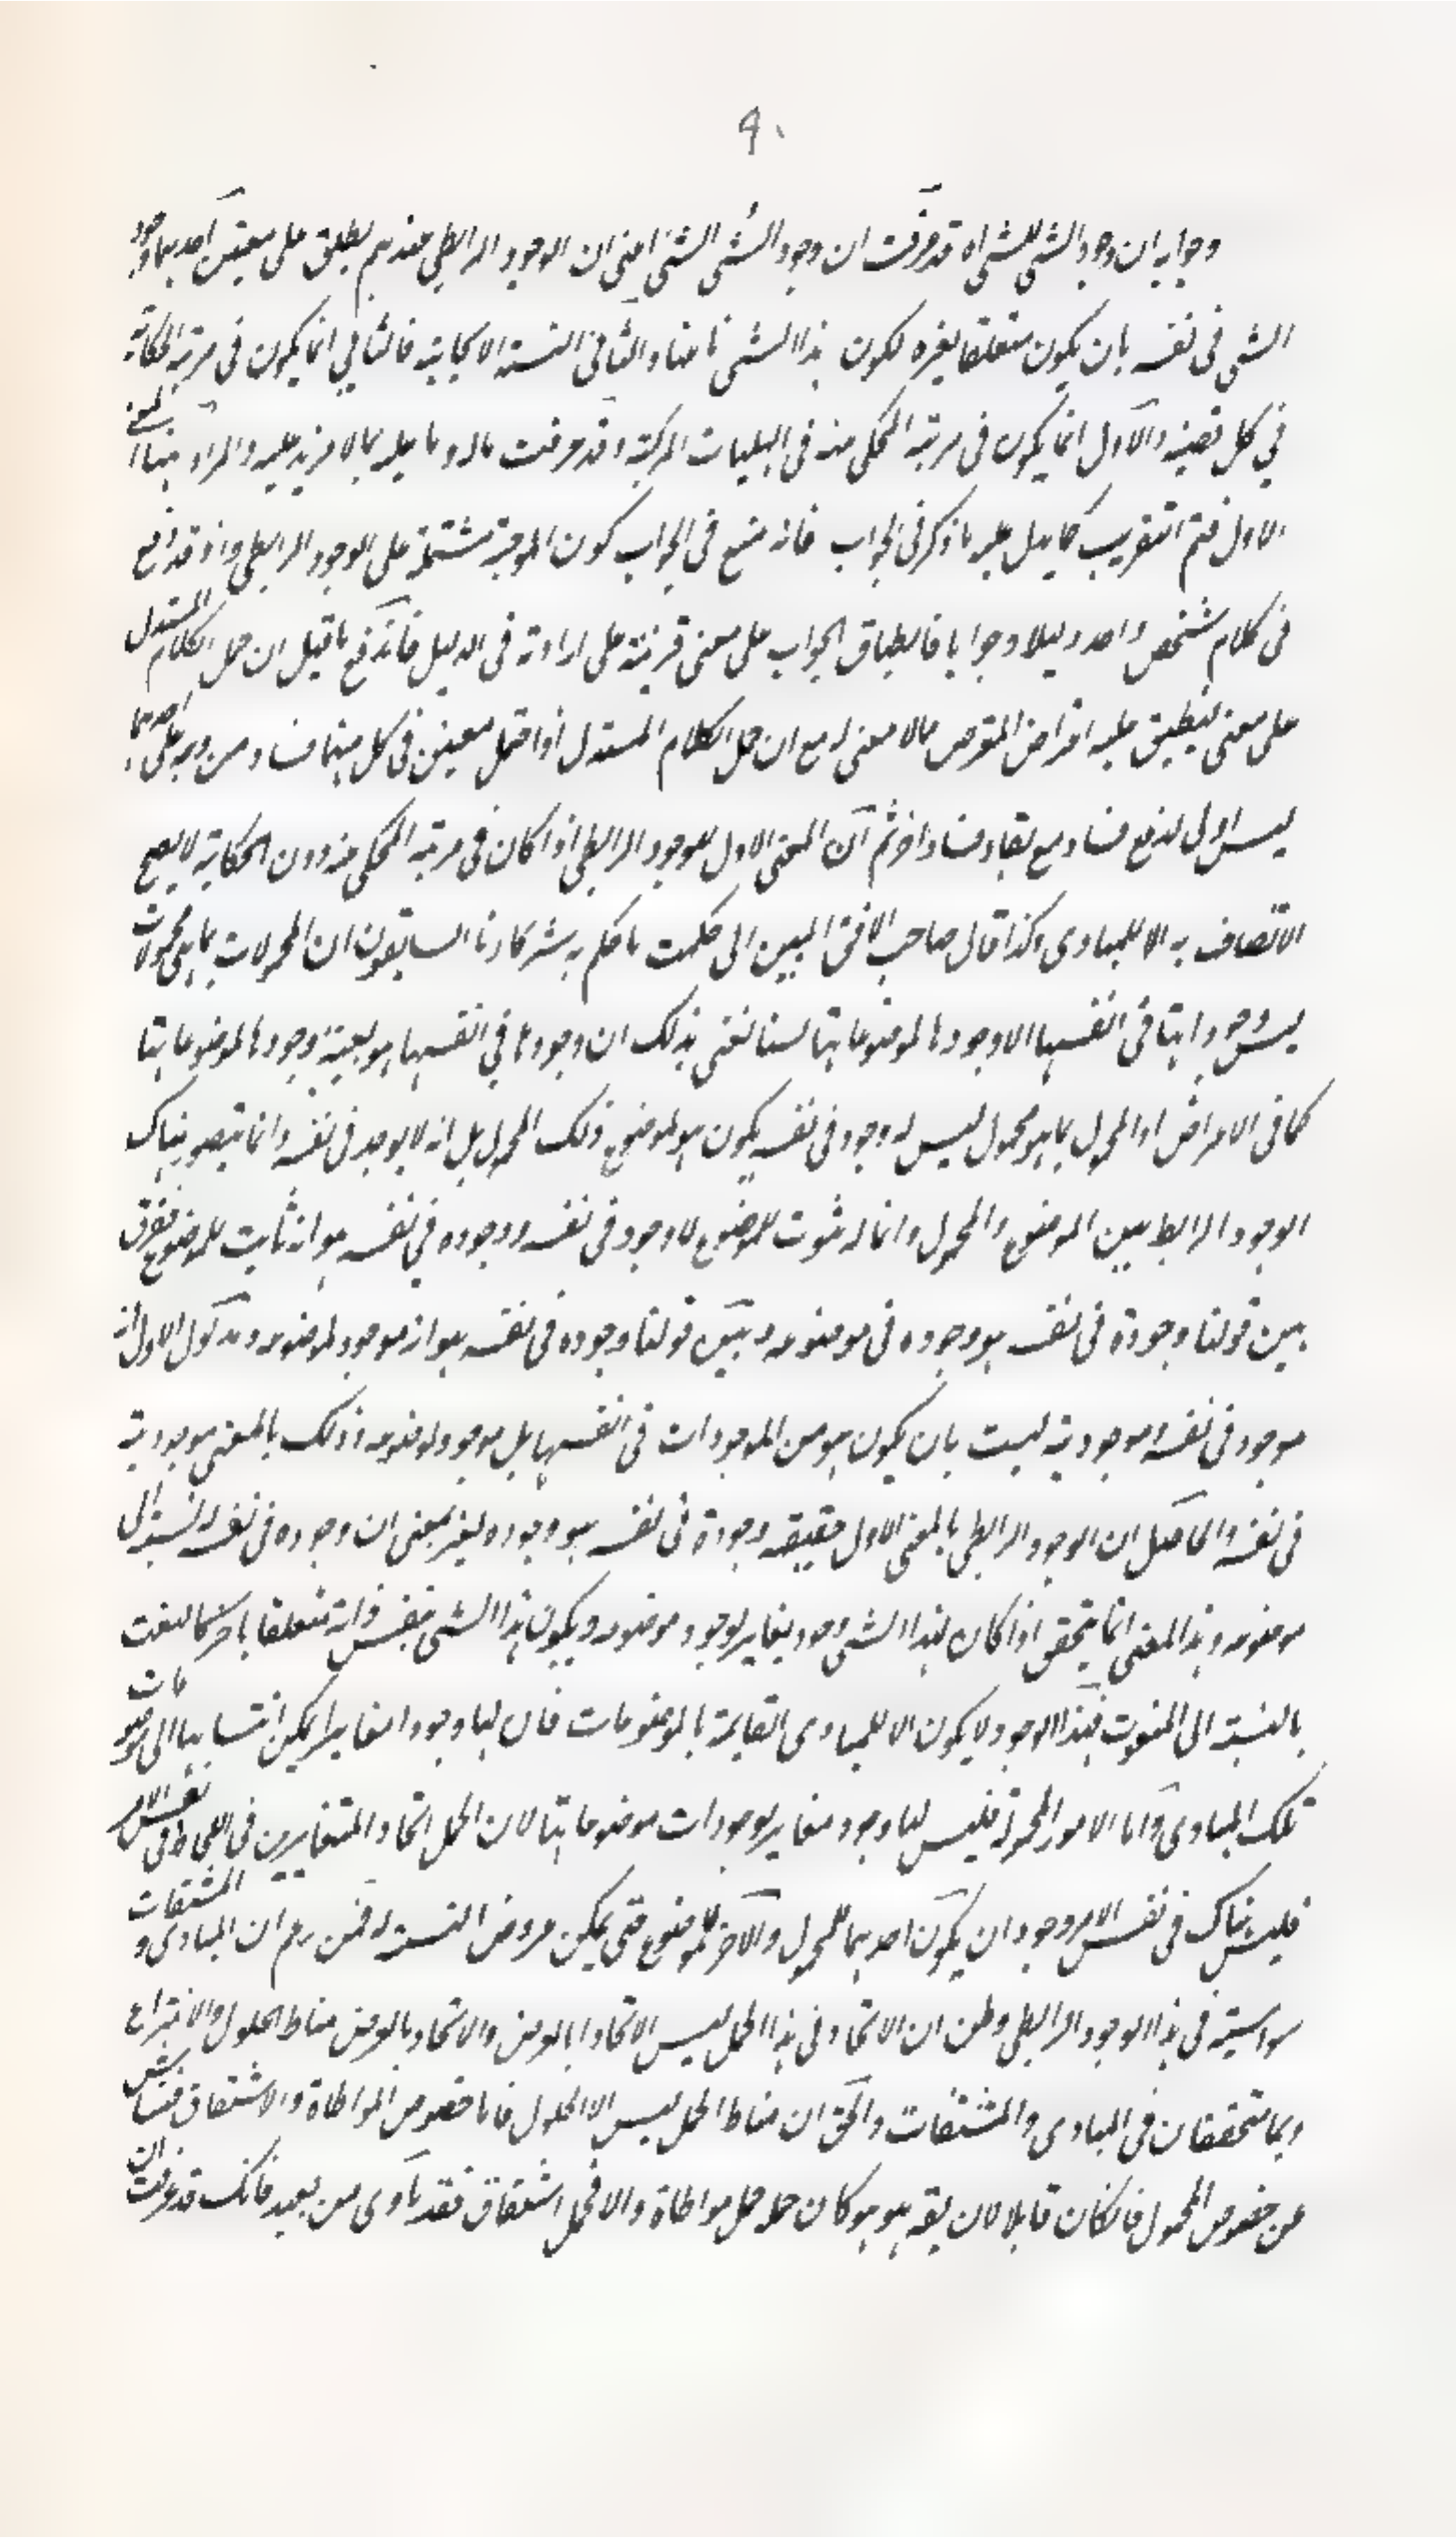 ٩٠
وجوابه ان وجود الشئ للشئ اه قد عرفت ان وجود الشئ الشئ اعنى ان الوجود الرابطى عندهم يطلق على معنيين احدهما وجود
الشئ فى نفسه بان يكون متعلقا بغيره لكون هذا الشئ ناعتا والثانى النسبة الايجابية فالثانى انما يكون فى مرتبة الحكاية
فى كل قضية والاول انما يكون فى مرتبة المحكى عنه فى الهليات المركبة وقد عرفت ماله وما عليه بما لا مزيد عليه والمراد ههنا المعنى
الاول فتم التقريب كما يدل عليه ما ذكر فى الجواب فانه منع فى الجواب كون الموجبة مشتملة على الوجود الرابطى واذ قد وقع
فى كلام شخص واحد دليلا وجوابا فانطباق الجواب على معنى قرينة على ارادته فى الدليل فاندفع ما قيل ان حمل الكلام المستدل
على معنى لينطبق عليه اعتراض المعترض مالا معنى له مع ان حمل الكلام المستدل اذا احتمل معنيين فى كل منهما فساد من وجه على احدهما
ليس اولى لدفع فساد مع بقاء فساد اخر ثم ان المعنى الاول للوجود الرابطى اذا كان فى مرتبة المحكى عنه دون الحكاية لا يصح
الاتصاف به الا للمبادى وكذا قال صاحب الافق المبين الى حكمت ما حكم به شركاؤنا السابقون ان المحمولات بما هى محمولات
ليس وجوداتها فى انفسها الا وجودها لموضوعاتها لسنا نعنى بذلك ان وجودها فى انفسها هو بعينه وجودها لموضوعاتها
كما فى الاعراض اذ المحمول بما هو محمول ليس له وجود فى نفسه يكون هو لموضوع ذلك المحمول بل انه لا يوجد فى نفسه وانما يتصور هناك
الوجود الرابط بين الموضوع والمحمول وانما له ثبوت للموضوع لا وجود فى نفسه ووجوده فى نفسه هو انه ثابت للموضوع ففرق
بين قولنا وجوده فى نفسه هو وجوده فى موضوعه وبين قولنا وجوده فى نفسه هو انه موجود لموضوعه ومدلول الاول انه
موجود فى نفسه وموجوديته ليست بان يكون هو من الموجودات فى انفسها بل موجود لموضوعه وذلك بالمعنى موجودية
فى نفسه والحاصل ان الوجود الرابطى بالمعنى الاول حقيقته وجوده فى نفسه هو وجوده لغيره بمعنى ان وجوده فى نفسه له نسبة الى
موضوعه وهذا المعنى انما يتحقق اذا كان لهذا الشئ وجود يغاير لوجود موضوعه ويكون هذا الشئ بنفس ذاته متعلقا باخر كالنعت
بالنسبة الى المنعوت فهذا الوجود لا يكون الا للمبادى القايمة بالموضوعات فان لها وجودا مغايرا يمكن انتسابها الى موضوعات
تلك المبادى واما الامور المحمولة فليس لها وجود مغاير لوجودات موضوعاتها لان الحمل اتحاد المتغايرين فى اللحاظ فى نفس الامر
فليس هناك فى نفس الامر وجود ان يكون احدهما للمحمول والآخر للموضوع حتى يمكن عروض النسبة له فمن زعم ان المبادى والمشتقات
سواسية فى هذا الوجود الرابطى وظن ان الاتحاد فى هذا الحمل ليس الا اتحادا بالعرض والاتحاد بالعرض مناط الحلول والانتزاع
وهما متحققان فى المبادى والمشتقات والحق ان مناط الحمل ليس الا الحلول فاما خصوص المواطاة والاشتقاق فناش
عن خصوص المحمول فان كان قابلا لان يقه هو هو كان حمله حمل مواطاة والا فحمل اشتقاق فقد نادى من بعيد فانك قد عرفت ان